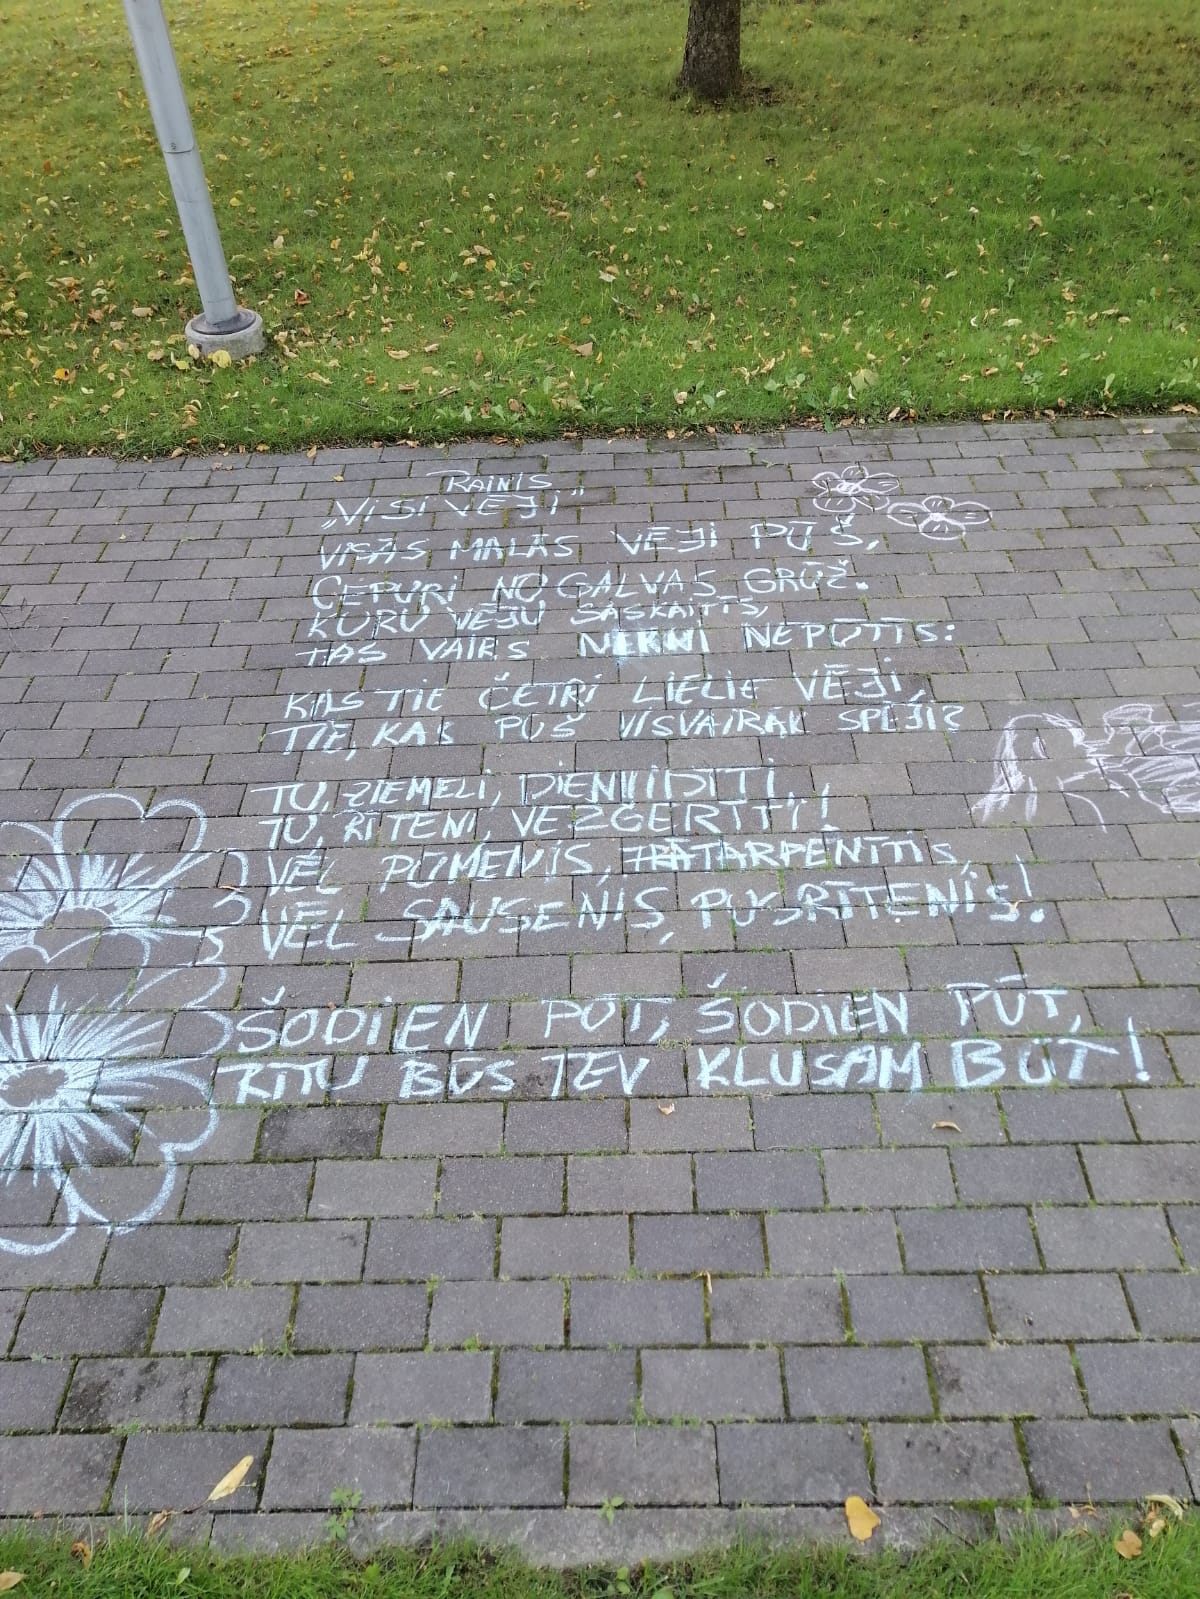 RAINIS
„VISI VĒJI"
VISĀS MALĀS VĒJI PŪŠ,
CEPURI NO GALVAS GRŪŽ.
KURU VĒJU SASKAITĪS,
TAS VAIRS NEKNI NEPŪTĪS:
KAS TIE ČETRI LIELIE VĒJI,
TIE, KAS PŪŠ VISVAIRĀK SPĒJI?
TU, ZIEMELI, DIENVIDĪTI,
TU, RĪTENI, VĒZGERĪTI!
VĒL PŪMENIS, TĀRPENĪTIS,
VĒL SAUSENIS, PUSRĪTENIS!
ŠODIEN PŪT, ŠODIEN PŪT,
RĪTU BŪS TEV KLUSAM BŪT!